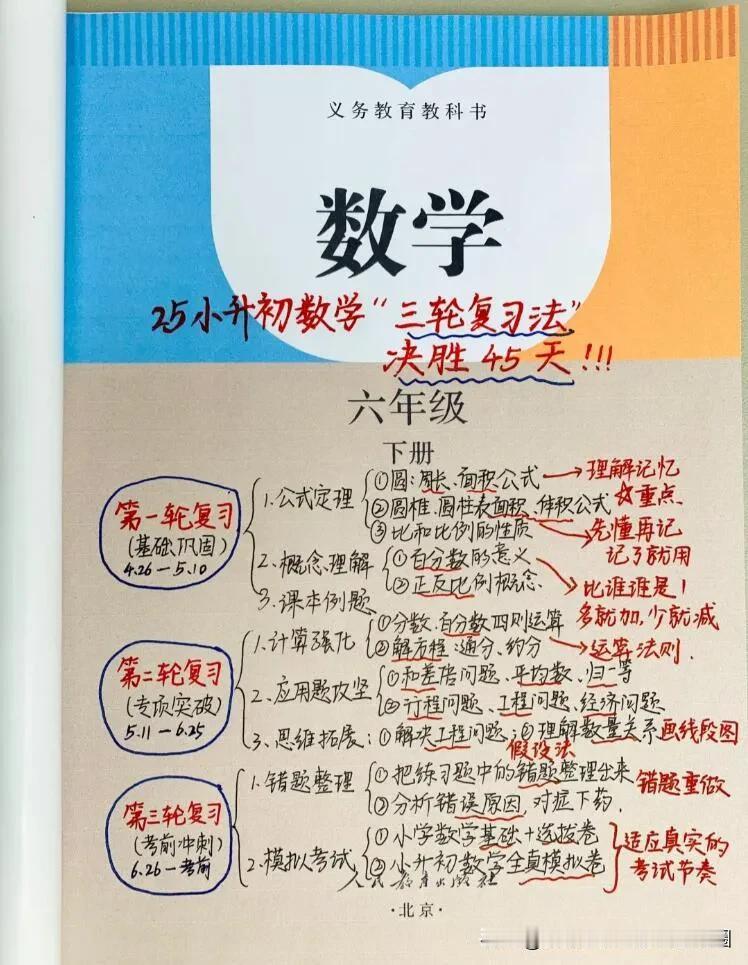 义务教育教科书
数学
25小升初数学“三轮复习法”
决胜45天!!!
六年级
下册
第一轮复习
(基础巩固)
4.26—5.10
1.公式定理
①圆:周长、面积公式→理解记忆
②圆椎、圆柱表面积、体积公式☆重点
③比和比例的性质→先懂再记
记了就用
2.概念理解
①百分数的意义
②正反比例概念→比谁谁是1
多就加,少就减
3.课本例题
第二轮复习
(专项突破)
5.11—6.25
1.计算强化
①分数、百分数四则运算
②解方程、通分、约分→运算法则.
2.应用题攻坚
①和差倍问题、平均数、归一等
②行程问题、工程问题、经济问题
3.思维拓展:①解决工程问题;②理解数量关系画线段图
假设法
第三轮复习
(考前冲刺)
6.26—考前
1.错题整理
①把练习题中的错题整理出来
②分析错误原因,对症下药.
错题重做
2.模拟考试
①小学数学基础+选拔卷
②小升初数学全真模拟卷
适应真实的
考试节奏
人民教育出版社
·北京·